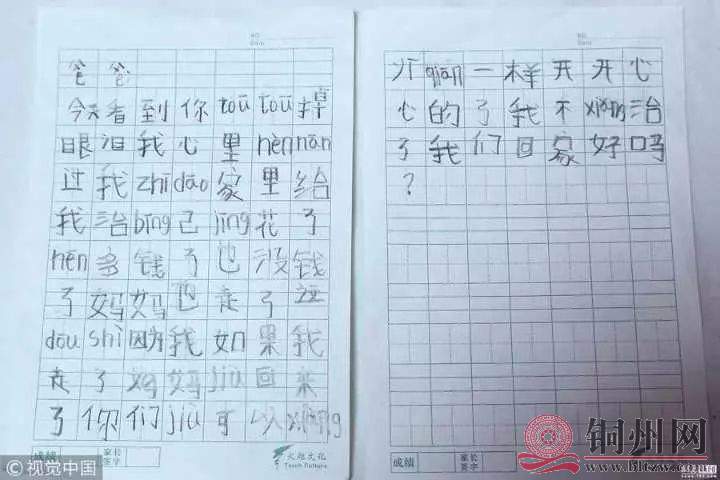 NO.
Date
爸爸
今天看到你toūtoū掉
眼泪我心里hènnān
过我zhīdāo家里给
我治bīng已jīng花了
hēn多钱了也没钱
了妈妈也走了这
dōu shì因为我如果我
走了妈妈jiù回来
了你们jiù可以xiàng
成绩 家长签字 火炬文化
Torch Culture
© 视觉中国
NO.
Date
以qiān一样开开心
心的了我不xiǎng治
了我们回家好吗
?
成绩 家长签字
铜州网
www.bltzw.com